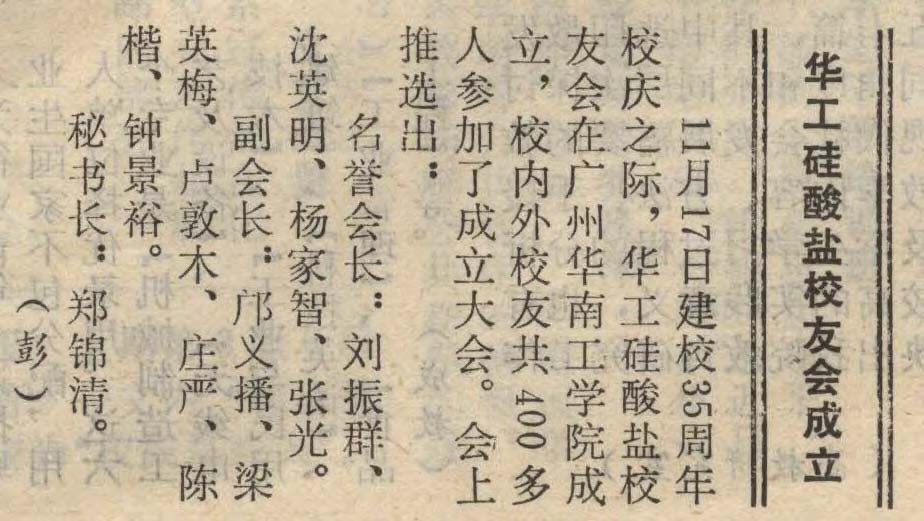 华工硅酸盐校友会成立
11月17日建校35周年
校庆之际，华工硅酸盐校
友会在广州华南工学院成
立，校内外校友共400多
人参加了成立大会。会上
推选出：
名誉会长：刘振群、
沈英明、杨家智、张光。
副会长：邝义播、梁
英梅、卢敦木、庄严、陈
楷、钟景裕。
秘书长：郑锦清。
（彭）